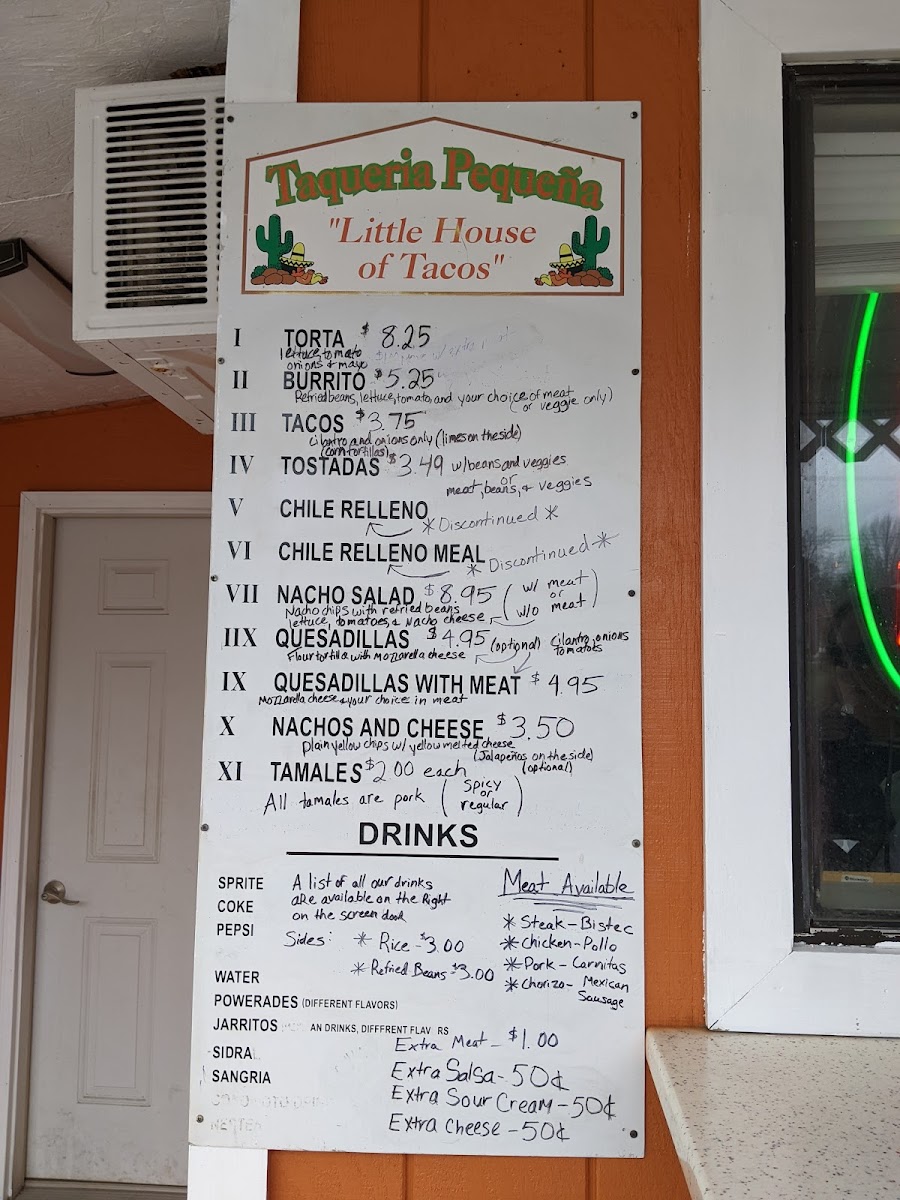 Taqueria Pequeña
"Little House
of Tacos"
I TORTA $ 8.25
lettuce, tomato
onions & mayo
II BURRITO $5.25
Refried beans, lettuce, tomato, and your choice of meat
(or veggie only)
III TACOS $3.75
cilantro and onions only (limes on the side)
(corn tortillas)
IV TOSTADAS $3.49 w/beans and veggies
or
meat, beans, & veggies
V CHILE RELLENO
* Discontinued *
VI CHILE RELLENO MEAL
* Discontinued *
VII NACHO SALAD $8.95 (w/ meat
or
w/o meat)
Nacho chips with refried beans
lettuce, tomatoes, & Nacho cheese
IIX QUESADILLAS $4.95 (optional) cilantro, onions
tomatoes
Flour tortilla with mozzarella cheese
IX QUESADILLAS WITH MEAT $4.95
Mozzarella cheese & your choice in meat
X NACHOS AND CHEESE $3.50
plain yellow chips w/ yellow melted cheese
(Jalapeños on the side)
(optional)
XI TAMALES $2.00 each
All tamales are pork (Spicy
or
regular)
DRINKS
SPRITE
COKE
PEPSI
A list of all our drinks
are available on the Right
on the screen door
Sides: * Rice - $3.00
* Refried Beans $3.00
Meat Available
* Steak - Bistec
* Chicken - Pollo
* Pork - Carnitas
* Chorizo - Mexican
Sausage
WATER
POWERADES (DIFFERENT FLAVORS)
JARRITOS AN DRINKS, DIFFFRENT FLAV RS
SIDRAL
SANGRIA
Extra Meat - $1.00
Extra Salsa - 50¢
Extra Sour Cream - 50¢
Extra Cheese - 50¢